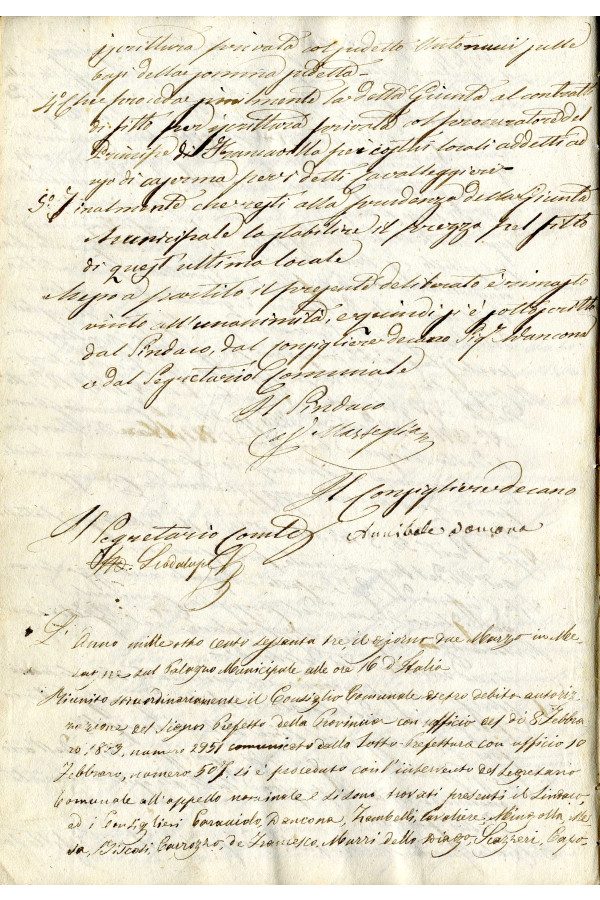 scrittura privata col sudetto Antonucci sulle
basi della somma sudetta.
4.° Che proceda similmente la detta Giunta al contratto
di fitto per iscrittura privata col procuratore del
Principe di Francavilla per quei locali addetti ad
uso di caserma per i detti Cavalleggieri
5.° Finalmente che resti alla prudenza della Giunta
Municipale lo stabilire il prezzo pel fitto
di quest'ultimo locale
Messo a partito il presente deliberato è rimasto
vinto all'unanimità, e quindi si è sottoscritto
dal Sindaco, dal consigliere decano Sig.r Dancona
e dal Segretario Comunale
Il Sindaco
Il Consigliere decano
Il Segretario Com.le
Annibale Dancona
L'Anno mille otto cento sessanta tre, il giorno due Marzo in Me-
sagne sul Palazzo Municipale alle ore 16 d'Italia
Riunito straordinariamente il Consiglio Comunale dietro debita autoriz-
zazione del Signor Prefetto della Provincia con ufficio del dì 5 Febbra-
ro 1863, numero 2951 comunicato dalla Sotto-Prefettura con ufficio 10
Febbraro, numero 507, si è proceduto coll'intervento del Segretario
Comunale all'appello nominale e si sono trovati presenti il Sindaco,
ed i Consiglieri Caraviolo, Dancona, Zambelli, Cavaliere, Mingolla, Me-
sa, Carrozzo, de Francesco, Murri dello Diago, Scazzeri, Capo-